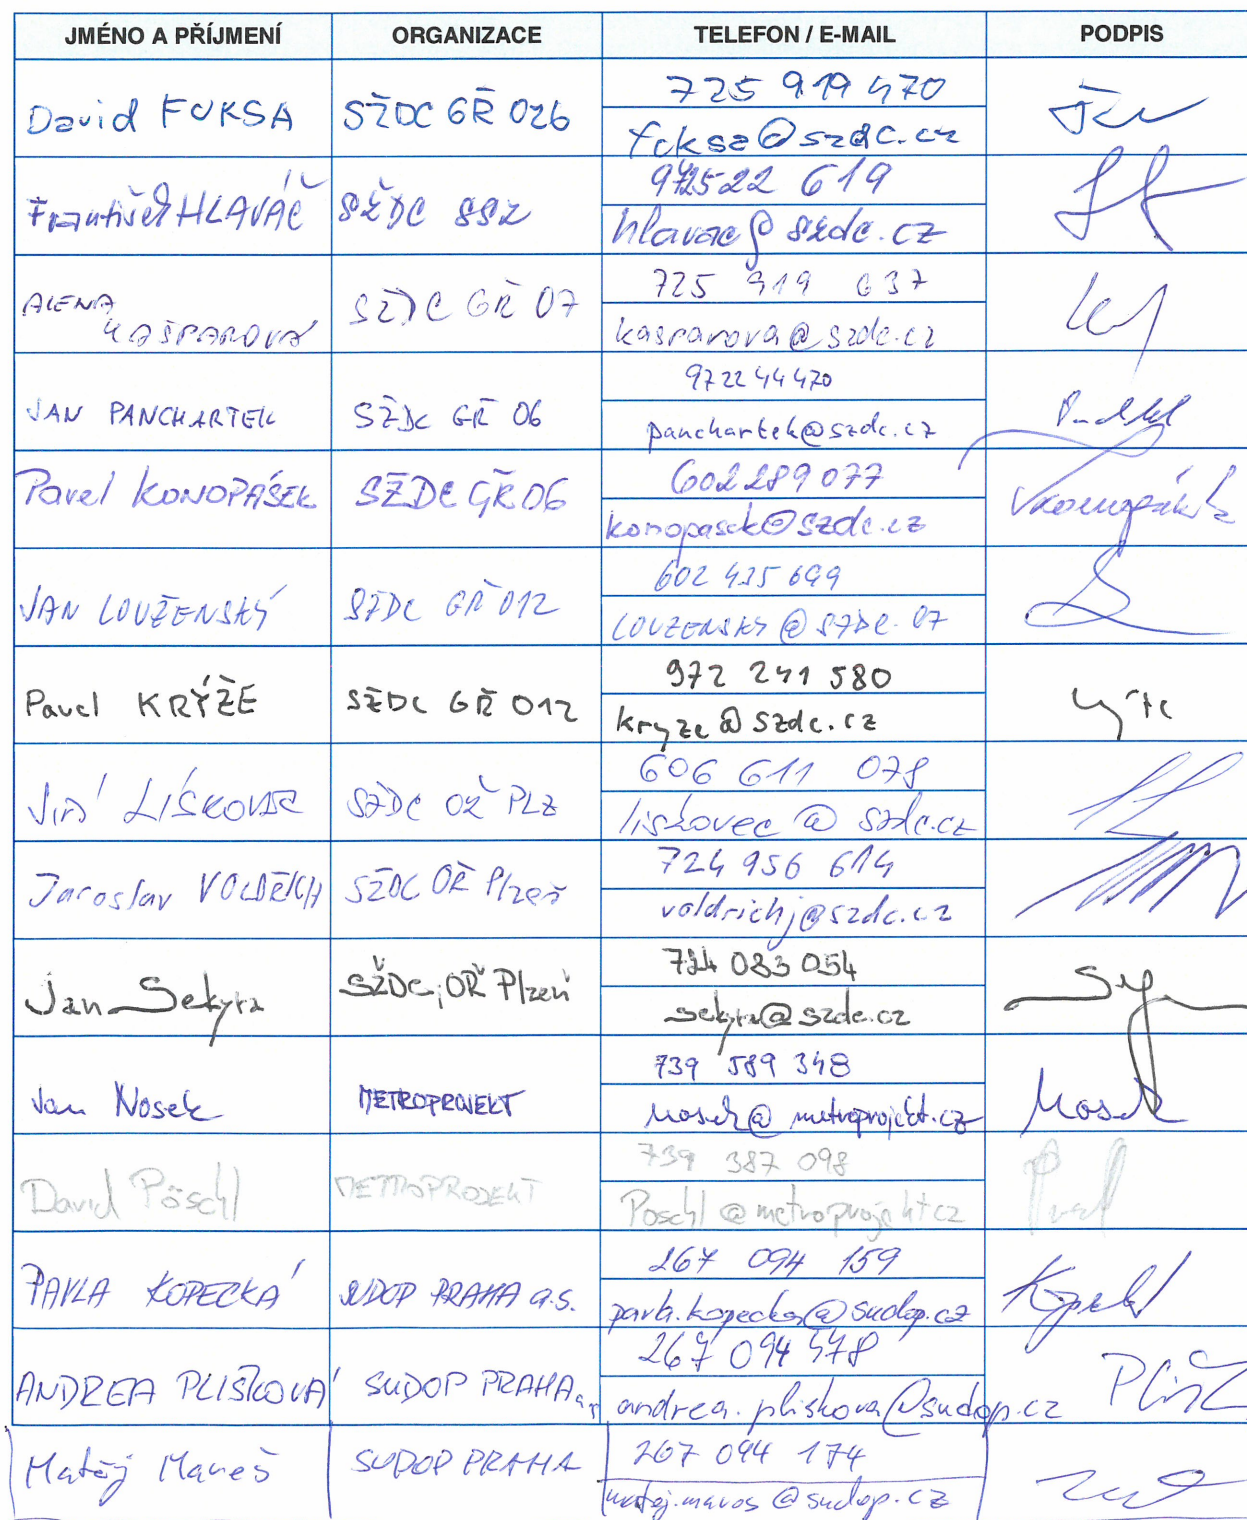 JMÉNO A PŘÍJMENÍ ORGANIZACE TELEFON / E-MAIL PODPIS
David FUKSA SŽDC GŘ 026 725 919 470
fuksa@szdc.cz
František HLAVÁČ SŽDC SSZ 522 619
hlavac@szdc.cz
ALENA KAŠPAROVÁ SŽDC GŘ 07 725 919 637
kasparova@szdc.cz
JAN PANCHARTEK SŽDC GŘ 06 972244470
panchartek@szdc.cz
Pavel KONOPÁSEK SŽDC GŘ 06 602289077
konopasek@szdc.cz
JAN LOUŽENSKÝ SŽDC GŘ 012 602 435 699
LOUZENSKY@SZDC.CZ
Pavel KRÝŽE SŽDC GŘ 012 972 241 580
kryze@szdc.cz
Jiří LÍSKOVEC SŽDC OŘ PLZ 606 611 078
liskovec@szdc.cz
Jaroslav VOLDŘICH SŽDC OŘ Plzeň 724 956 614
voldrichj@szdc.cz
Jan Sekyra SŽDC, OŘ Plzeň 724 083 054
sekyra@szdc.cz
Jan Nosek METROPROJEKT 739 589 348
nosek@metroprojekt.cz Nosek
David Pöschl METROPROJEKT 739 387 098
Poschl@metroprojekt.cz
PAVLA KOPECKÁ SUDOP PRAHA a.s. 267 094 159
pavla.kopecka@sudop.cz
ANDREA PLIŠKOVÁ SUDOP PRAHA a.s. 267 094 478
andrea.pliskova@sudop.cz
Matěj Mareš SUDOP PRAHA 267 094 174
matej.mares@sudop.cz